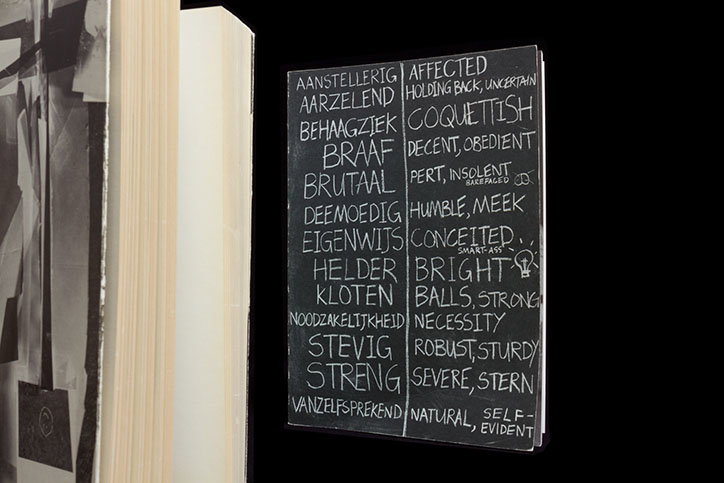 AANSTELLERIG AFFECTED
AARZELEND HOLDING BACK, UNCERTAIN
BEHAAGZIEK COQUETTISH
BRAAF DECENT, OBEDIENT
BRUTAAL PERT, INSOLENT
BAREFACED
DEEMOEDIG HUMBLE, MEEK
EIGENWIJS CONCEITED...
SMART-ASS
HELDER BRIGHT
KLOTEN BALLS, STRONG
NOODZAKELIJKHEID NECESSITY
STEVIG ROBUST, STURDY
STRENG SEVERE, STERN
VANZELFSPREKEND NATURAL, SELF-
EVIDENT